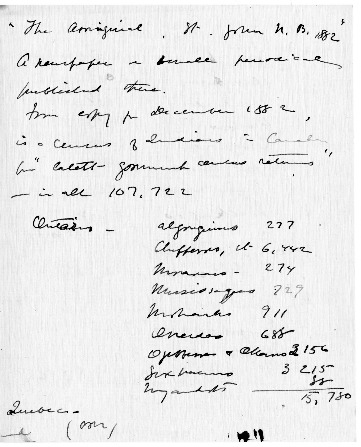 "The Aboriginal, St. John N. B. 1882"
A newspaper or small periodical
published there.
From copy for December 1882,
is a census of Indians in Canada
fm "latest government census returns",
— in all 107,722
Ontario — Algonquins 277
Chippewas, 6,442
Moravians - 274
Mississaguas 729
Mohawks 911
Oneidas 688
Ojibbewas & Ottawas 3 156
Six Nations 3 215
Wyandots 88
15,780
Quebec —